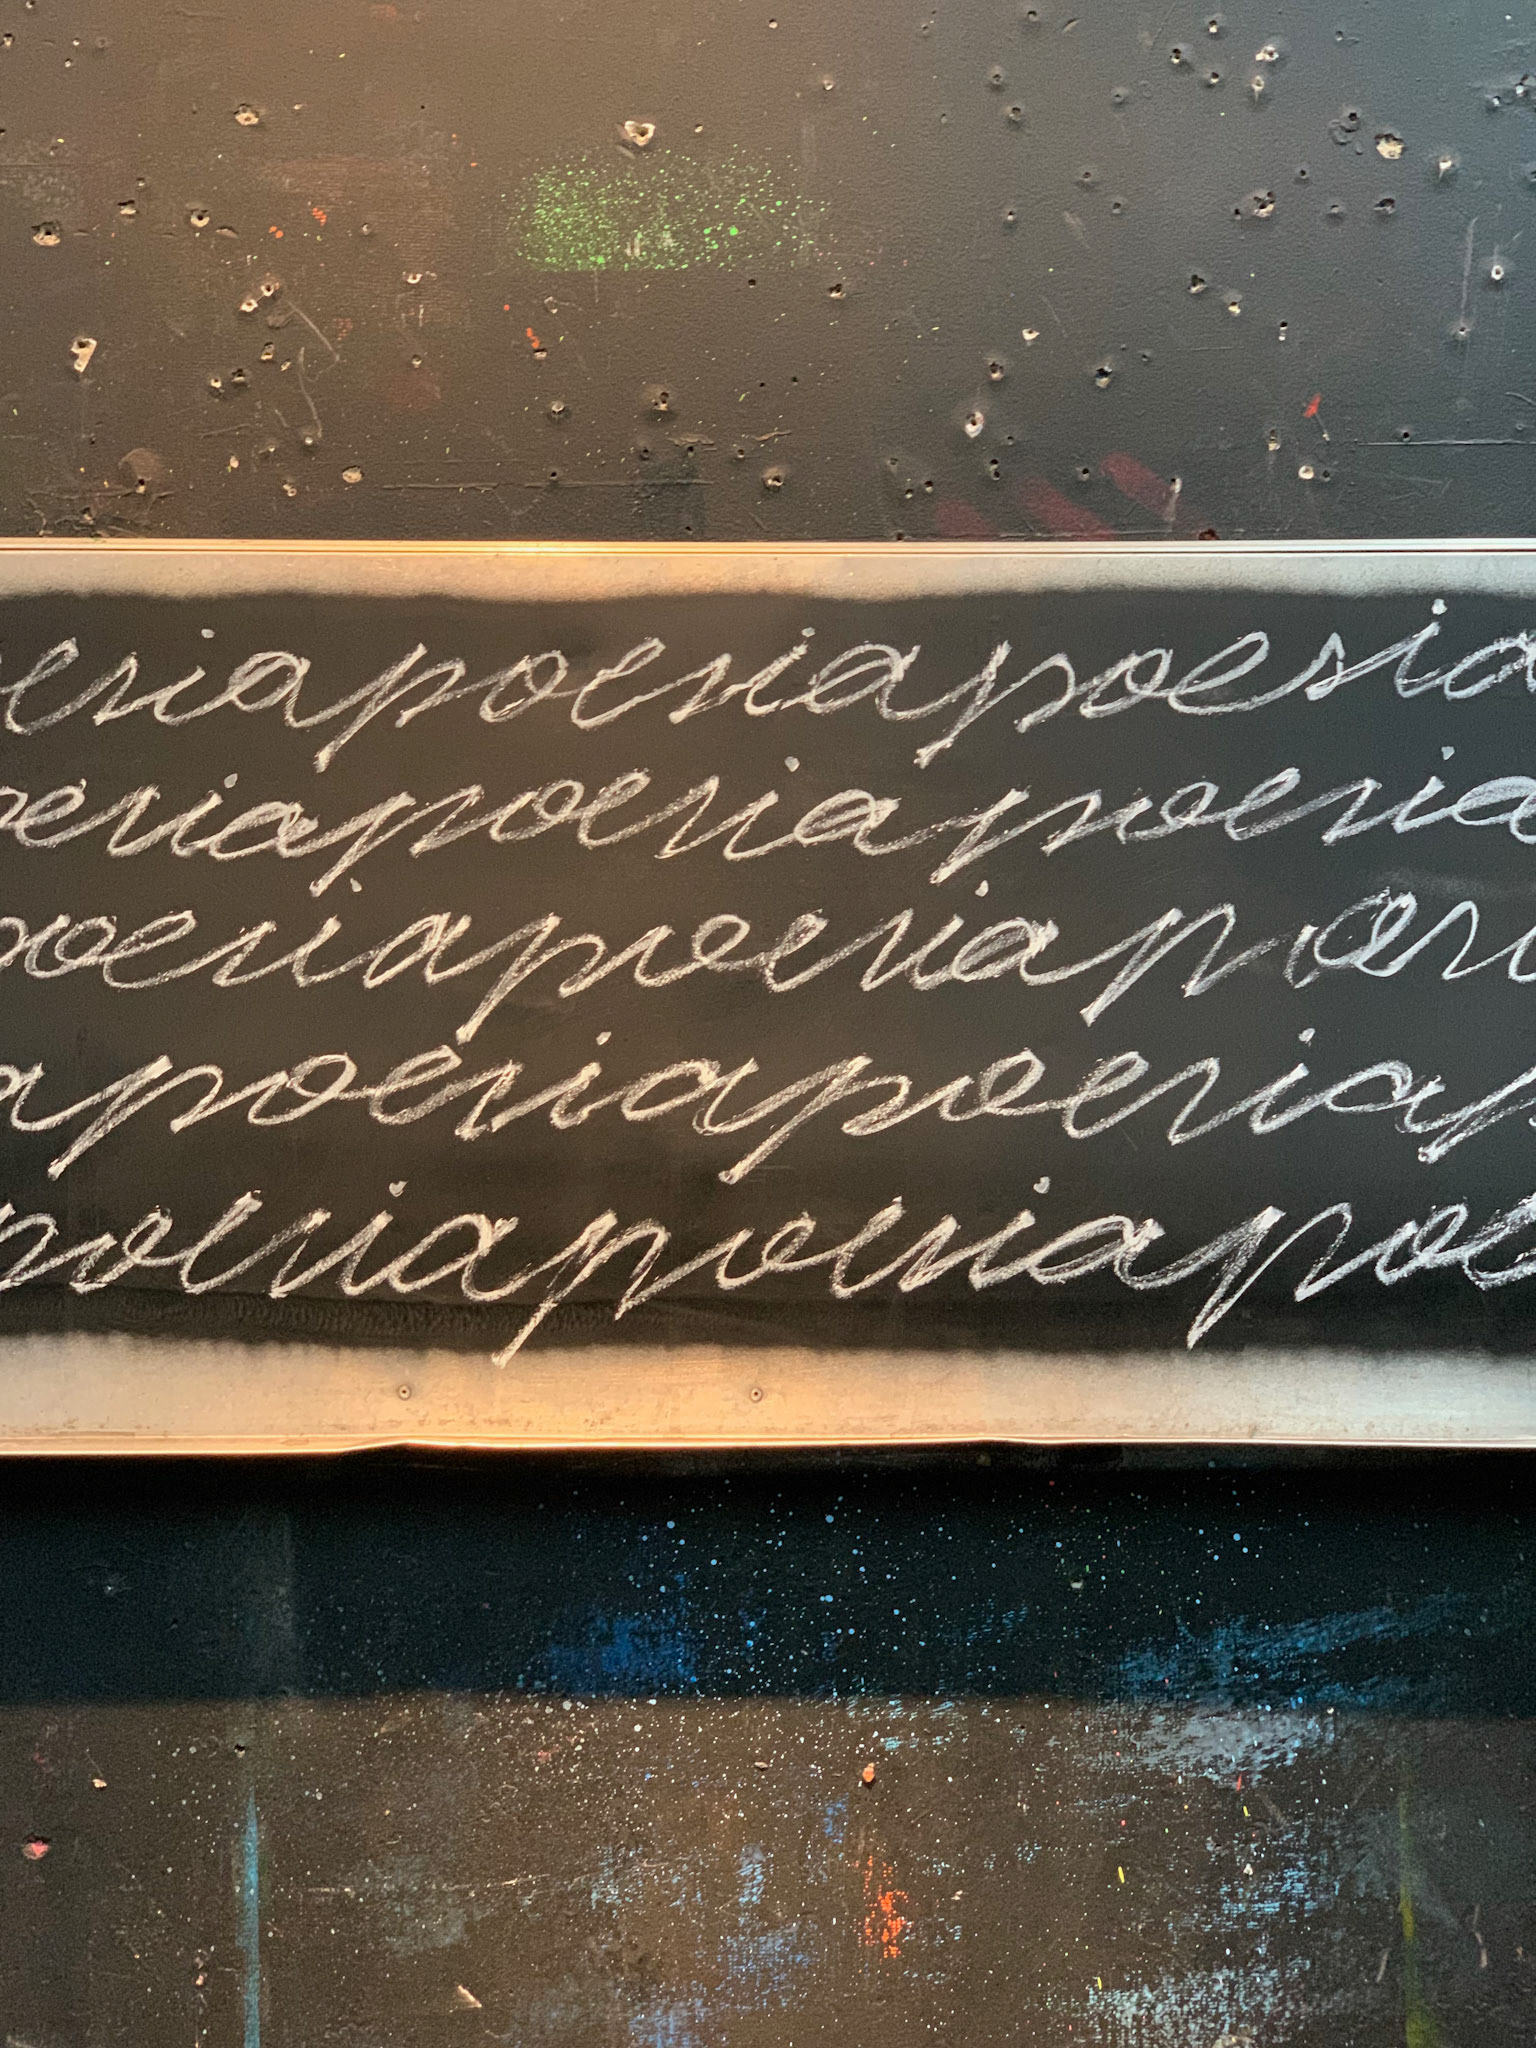 esiapoesiapoesia
oesiapoesiapoesia
poesiapoesiapoes
apoesiapoesiap
poesiapoesiapoe